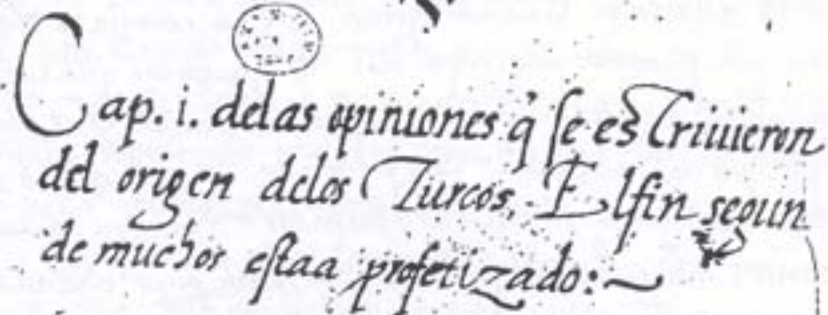 Cap. i. delas opiniones q̃ se escriuieron
del origen delos Turcos, El fin segun
de muchos estaa profetizado:~